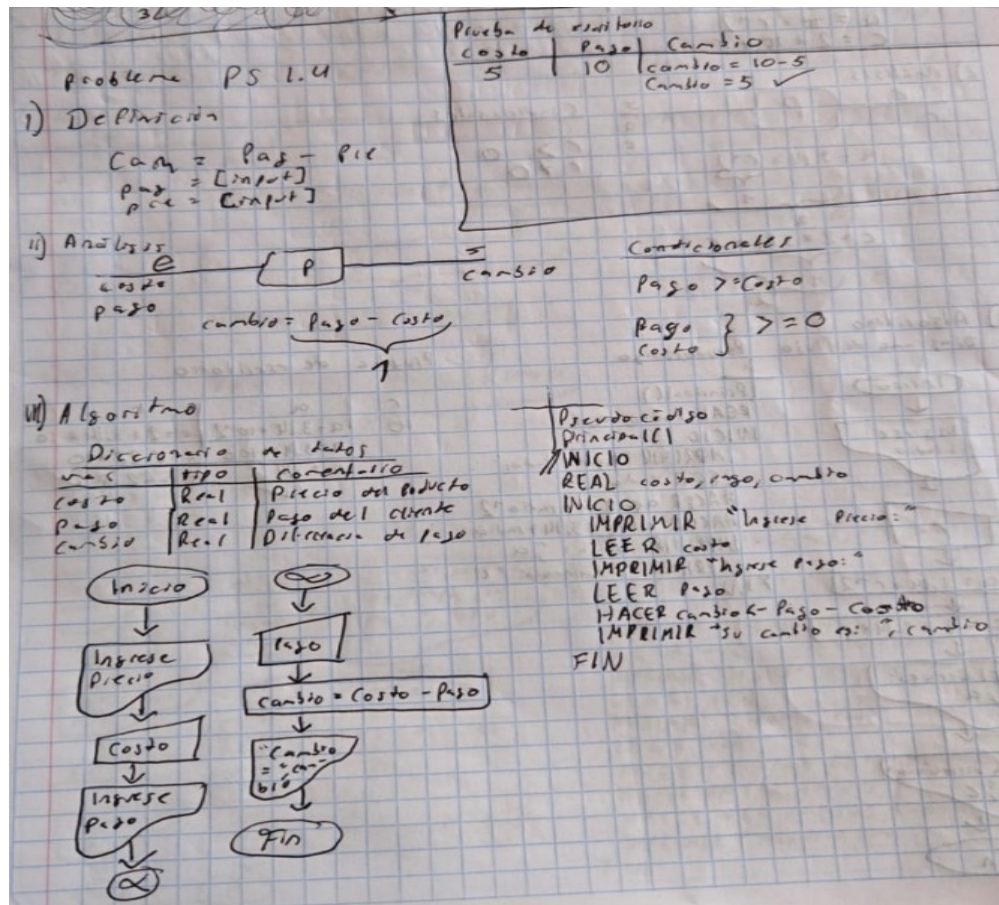 32
Prueba de escritorio
costo | Pago | Cambio
5 | 10 | cambio = 10-5
Cambio = 5 ✓
Problema PS 1.4
I) Definición
Cam = Pag - Pre
pag = [input]
pre = [input]
II) Análisis
e
P
s
costo
pago
cambio
cambio = Pago - Costo
1
Condicionales
Pago >= Costo
Pago
Costo } >= 0
III) Algoritmo
Diccionario de datos
var | tipo | Comentario
costo | Real | Precio del producto
Pago | Real | Pago del cliente
cambio | Real | Diferencia de pago
Inicio
Ingrese
Precio
Costo
Ingrese
Pago
∝
∝
Pago
cambio = Costo - Pago
"Cambio
= ", cam
bio
Fin
Pseudocódigo
Principal()
INICIO
REAL costo, pago, cambio
INICIO
IMPRIMIR "Ingrese Precio:"
LEER costo
IMPRIMIR "Ingrese Pago:"
LEER Pago
HACER cambio <- Pago - Costo
IMPRIMIR "su cambio es: ", cambio
FIN